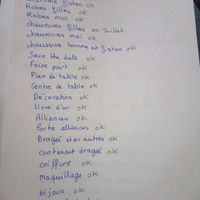 costume fiston ok
Robes filles ok
Robes moi ok
chaussures filles en Juillet
chaussures moi ok
chaussure homme et fiston ok
Save the date ok
Faire part ok
Plan de table ok
Centre de table ok
Décoration ok
Livre d'or ok
Alliances ok
Porte alliances ok
Drageé et autres ok
contenant drageé ok
coiffure ok
maquillage ok
bijoux ok